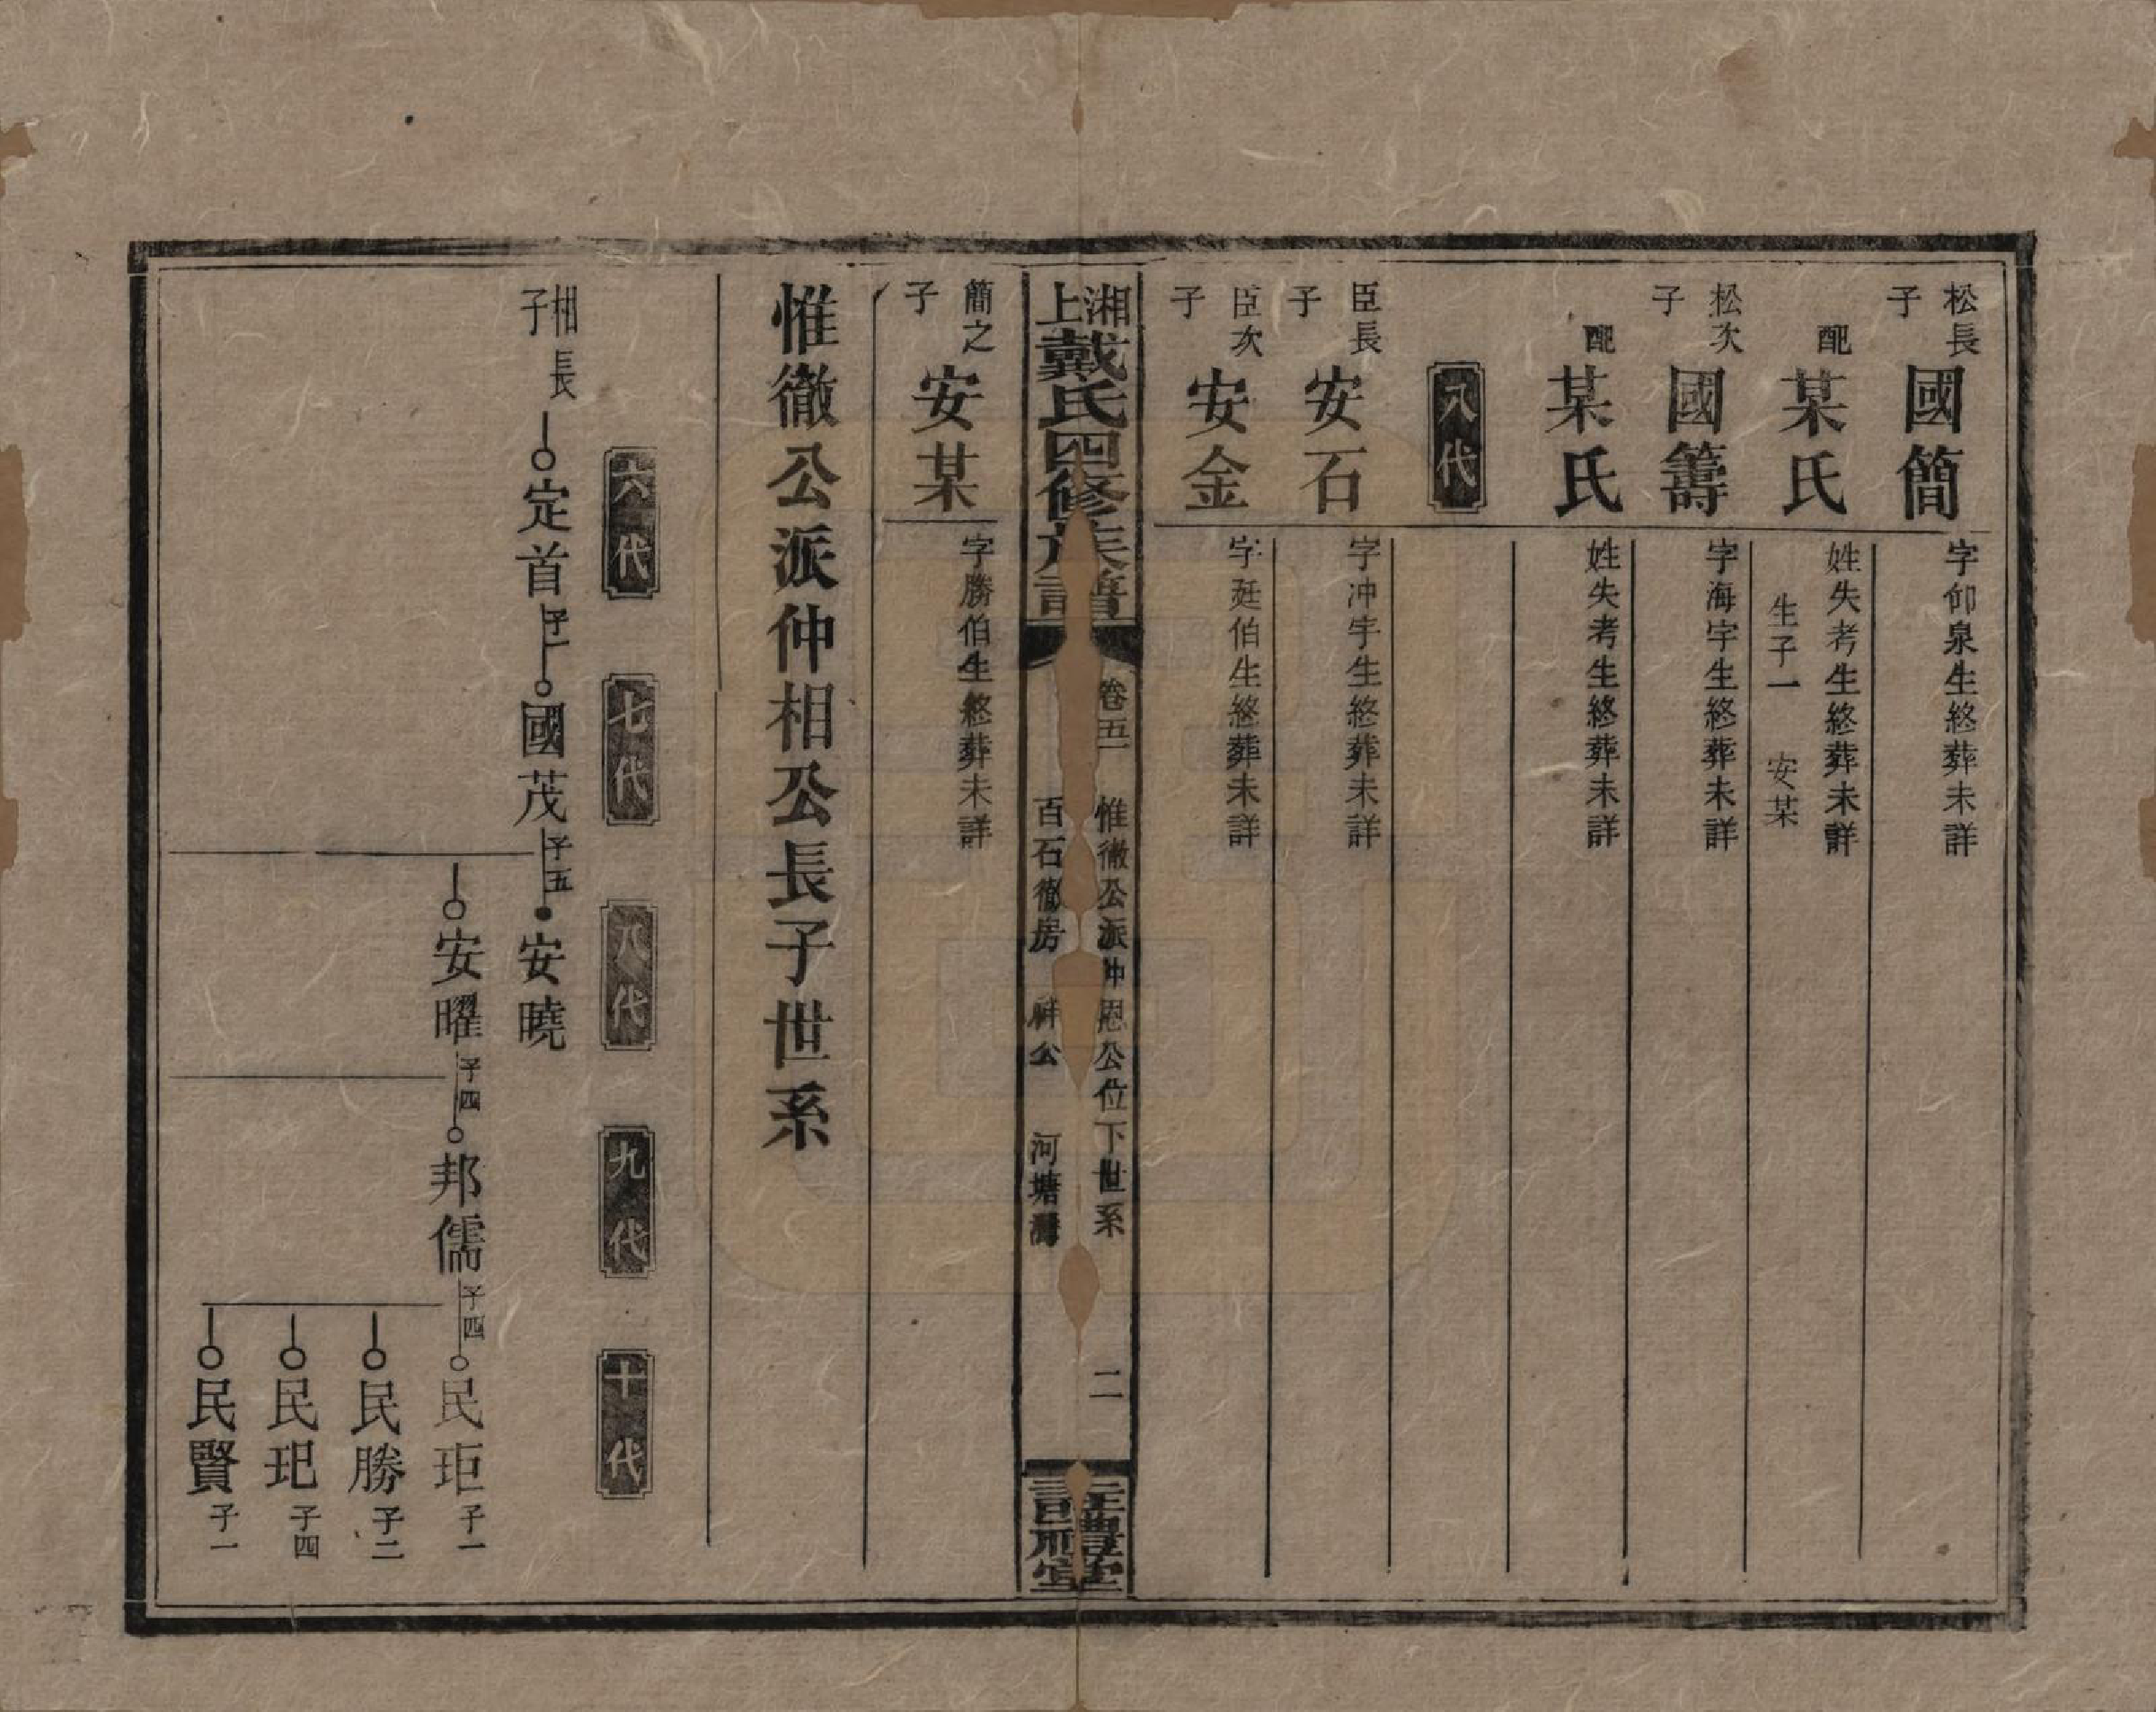 松長子 國簡 字仰泉生終葬未詳
配 某氏 姓失考生終葬未詳
生子一 安某
松次子 國籌 字海宇生終葬未詳
配 某氏 姓失考生終葬未詳
八代
臣長子 安石 字冲宇生終葬未詳
臣次子 安金 字廷伯生終葬未詳
湘上戴氏四修族譜
卷五 惟徹公派仲恩公位下世系
百石徹房 祥公 河塘灣
二
註禮堂
簡之子 安某 字勝伯生終葬未詳
惟徹公派仲相公長子世系
六代 七代 八代 九代 十代
相長子 定首 子一 國茂 子五 安曉
安曜 子四 邦儒 子四 民玸 子一
民勝 子二
民玘 子四
民賢 子一